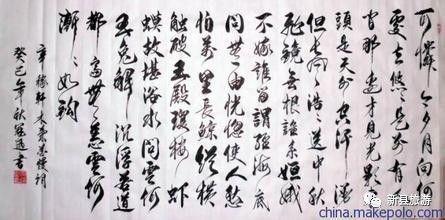 可憐今夕月向何
處去悠悠是别有人
間那邊才見光影東
頭是天外空汗漫
但長風浩浩送中秋
飛鏡無根誰系姮娥
不嫁誰留謂經海底
問無由恍惚使人愁
怕萬里長鲸縱横
觸破玉殿瓊樓虾
蟆故堪浴水問雲何
玉兔解沉浮若道
都齊無恙雲何
漸漸如鈎
辛稼軒木蘭花慢詞
癸巳年秋書
新县旅游
china.makepolo.com